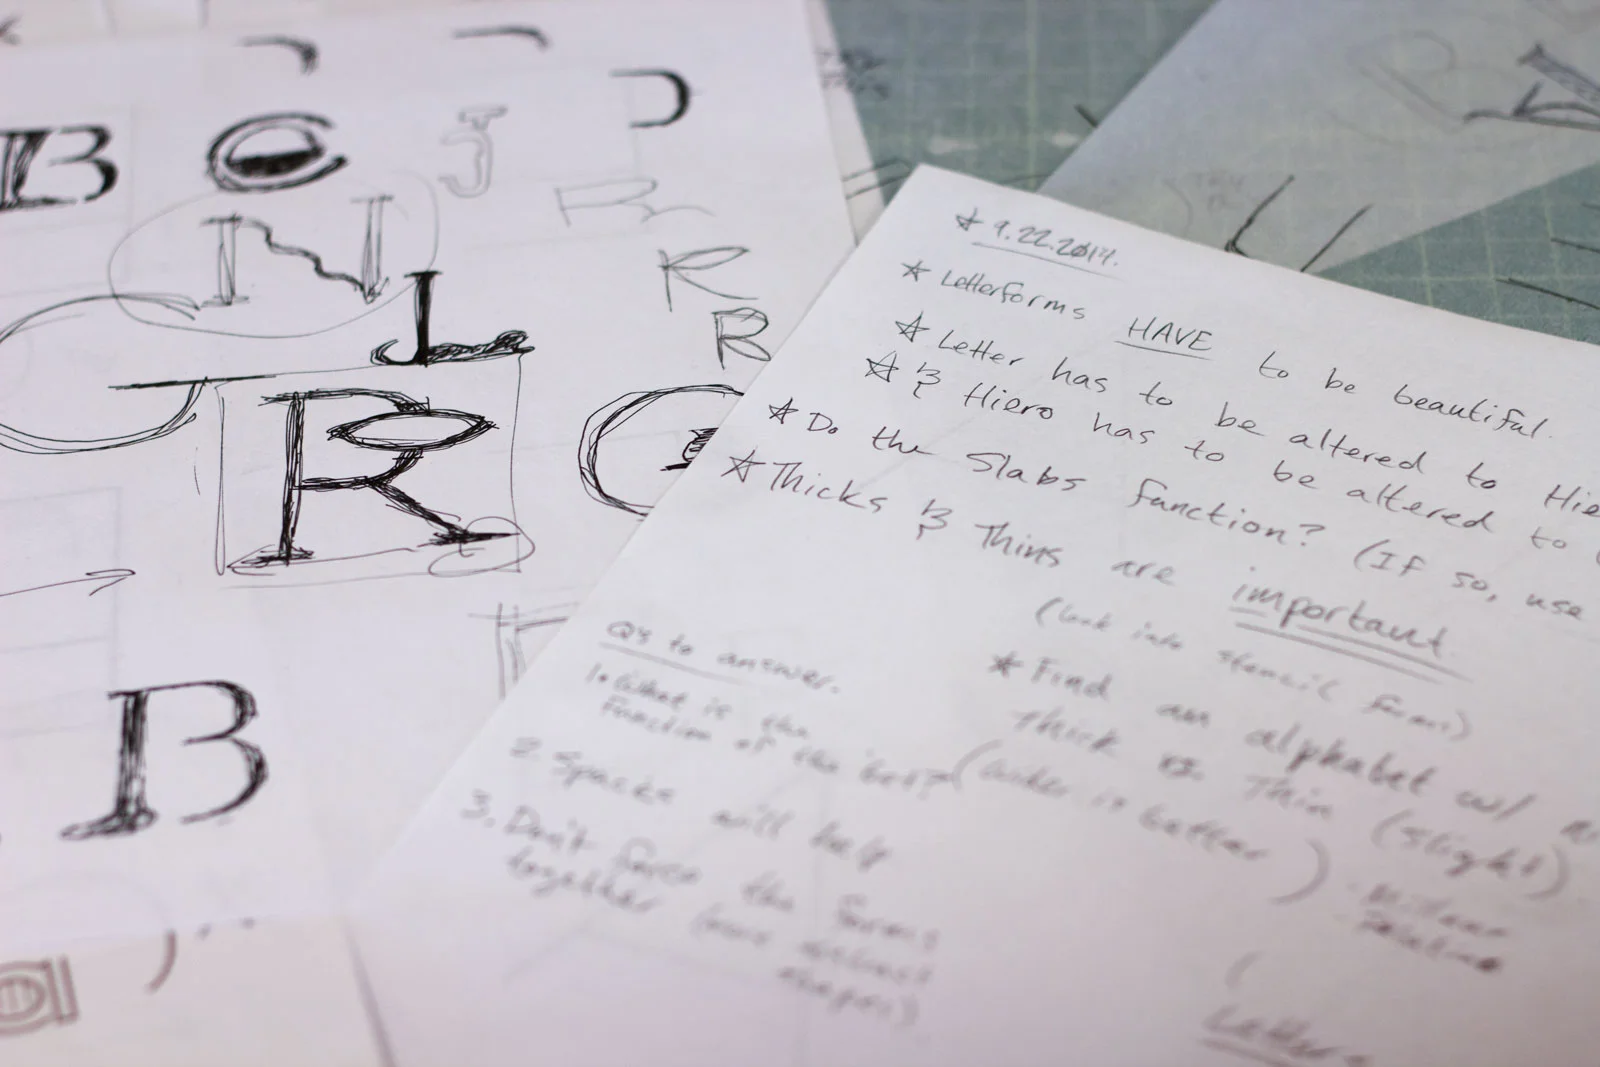 B C J
N
R
L
R
R
B
☆ 9.22.2014.
☆ Letterforms HAVE to be beautiful.
☆ Letter has to be altered to Hie
☆ & Hiero has to be altered to
☆ Do the Slabs function? (If so, use
☆ Thicks & Thins are important
(look into stencil forms)
☆ Find an alphabet w/
Thick vs. Thin (slight)
Q's to answer.
1. What is the
Function of the (wider is better)
2. Spaces will help
3. Don't force the forms
together (more distinct
shapes)
Letters